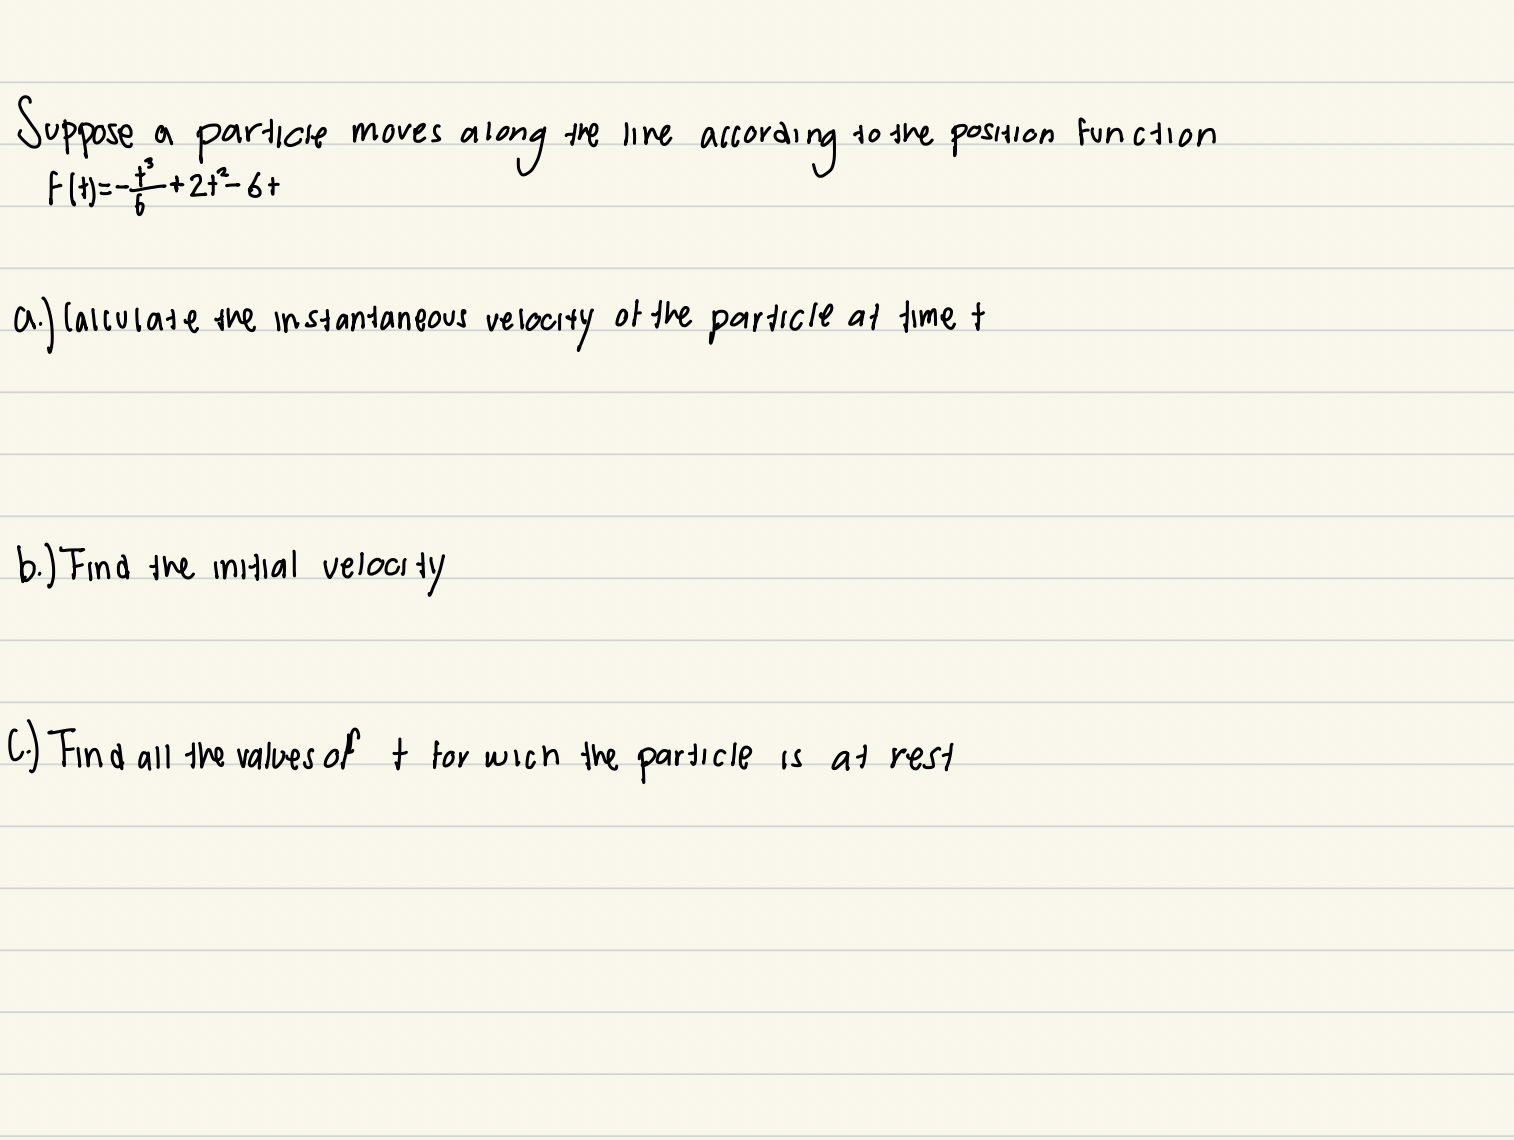 Suppose a particle moves along the line according to the position function
F(t)=-t³/6+2t²-6t
a.) Calculate the instantaneous velocity of the particle at time t
b.) Find the initial velocity
C.) Find all the values of t for wich the particle is at rest